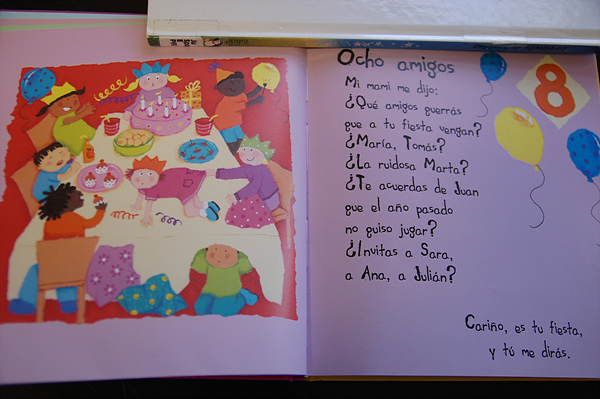 Ocho amigos
8
Mi mami me dijo:
¿Qué amigos querrás
que a tu fiesta vengan?
¿María, Tomás?
¿La ruidosa Marta?
¿Te acuerdas de Juan
que el año pasado
no quiso jugar?
¿Invitas a Sara,
a Ana, a Julián?
Cariño, es tu fiesta,
y tú me dirás.